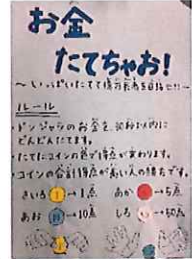 お金
たてちゃお!
～いっぱいたてて億万長者を目指せ!!～
ルール
・ドンジャラのお金を、30秒以内に
どんどんたてます。
・たてたコインの色で得点が変わります。
・コインの合計得点が高い人の勝ちです。
きいろ 1 →1点 あか 5 →5点
あお 10 →10点 しろ 50 →50点